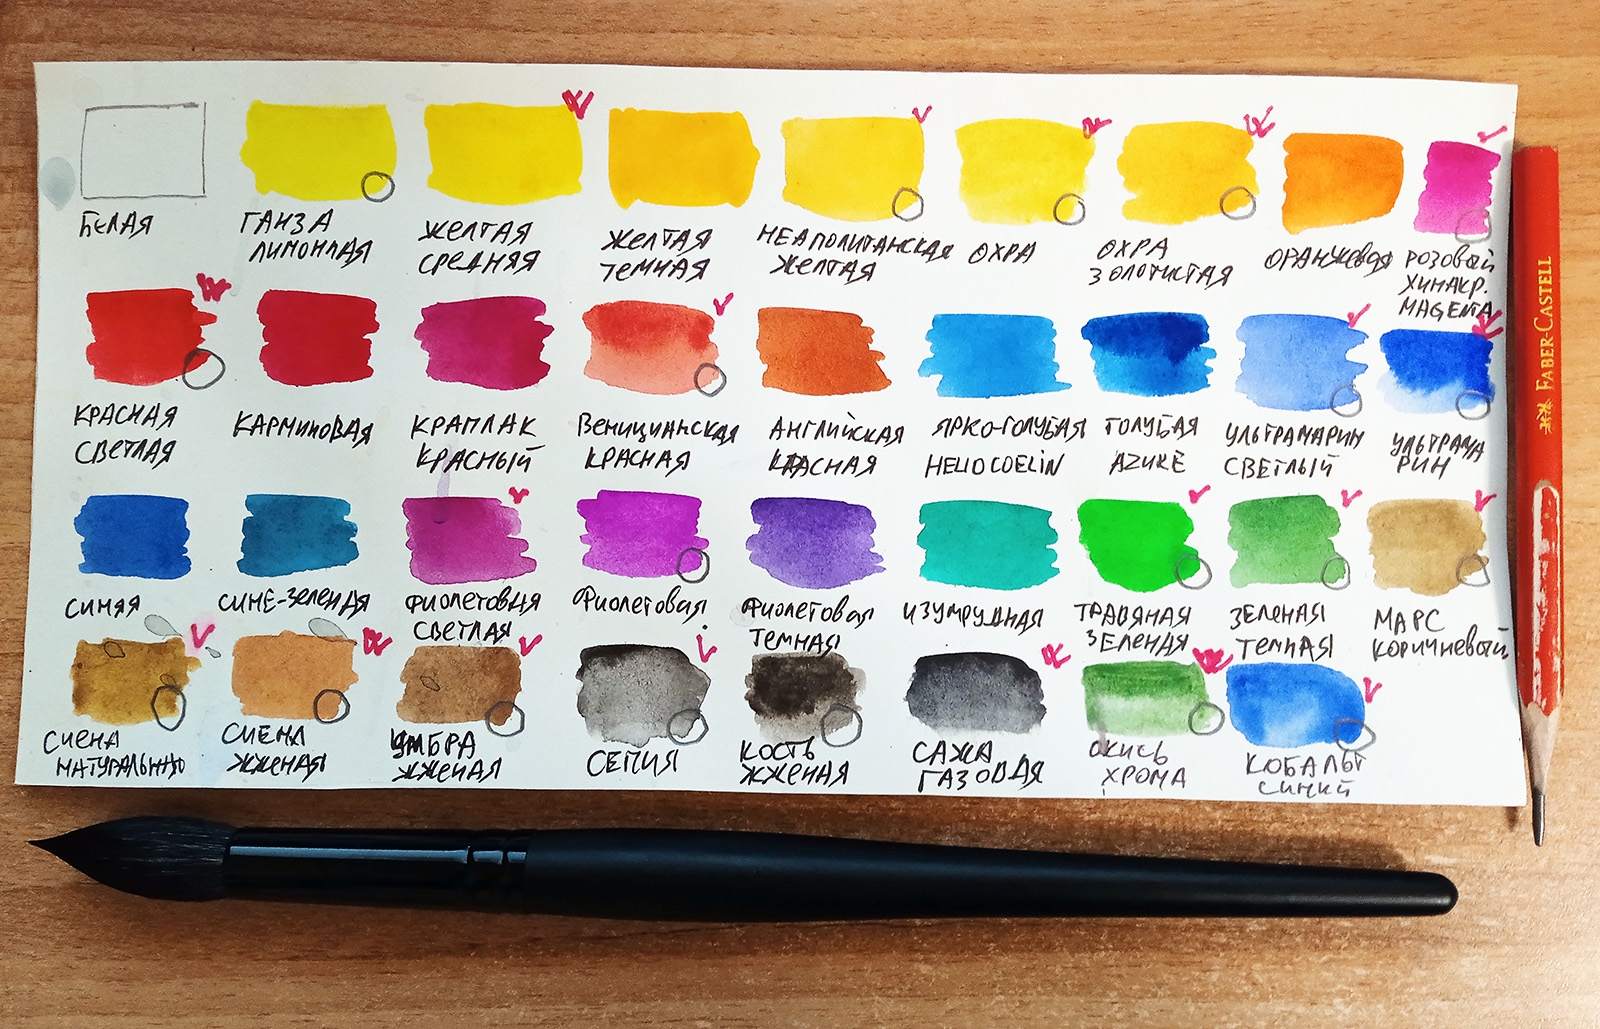 БЕЛАЯ
ГАНЗА
ЛИМОННАЯ
ЖЕЛТАЯ
СРЕДНЯЯ
ЖЕЛТАЯ
ТЕМНАЯ
НЕАПОЛИТАНСКАЯ
ЖЕЛТАЯ
ОХРА
ОХРА
ЗОЛОТИСТАЯ
ОРАНЖЕВАЯ
РОЗОВЫЙ
ХИНАКР.
MAGENTA
КРАСНАЯ
СВЕТЛАЯ
КАРМИНОВАЯ
КРАПЛАК
КРАСНЫЙ
ВЕНИЦИАНСКАЯ
КРАСНАЯ
АНГЛИЙСКАЯ
КРАСНАЯ
ЯРКО-ГОЛУБАЯ
HELIOCOELIN
ГОЛУБАЯ
AZURE
УЛЬТРАМАРИН
СВЕТЛЫЙ
УЛЬТРАМА
РИН
СИНЯЯ
СИНЕ-ЗЕЛЕНАЯ
ФИОЛЕТОВАЯ
СВЕТЛАЯ
ФИОЛЕТОВАЯ.
ФИОЛЕТОВАЯ
ТЕМНАЯ
ИЗУМРУДНАЯ
ТРАВЯНАЯ
ЗЕЛЕНАЯ
ЗЕЛЕНАЯ
ТЕМНАЯ
МАРС
КОРИЧНЕВЫЙ
СИЕНА
НАТУРАЛЬНАЯ
СИЕНА
ЖЖЕНАЯ
УМБРА
ЖЖЕНАЯ
СЕПИЯ
КОСТЬ
ЖЖЕНАЯ
САЖА
ГАЗОВАЯ
ОКИСЬ
ХРОМА
КОБАЛЬТ
СИНИЙ
FABER-CASTELL